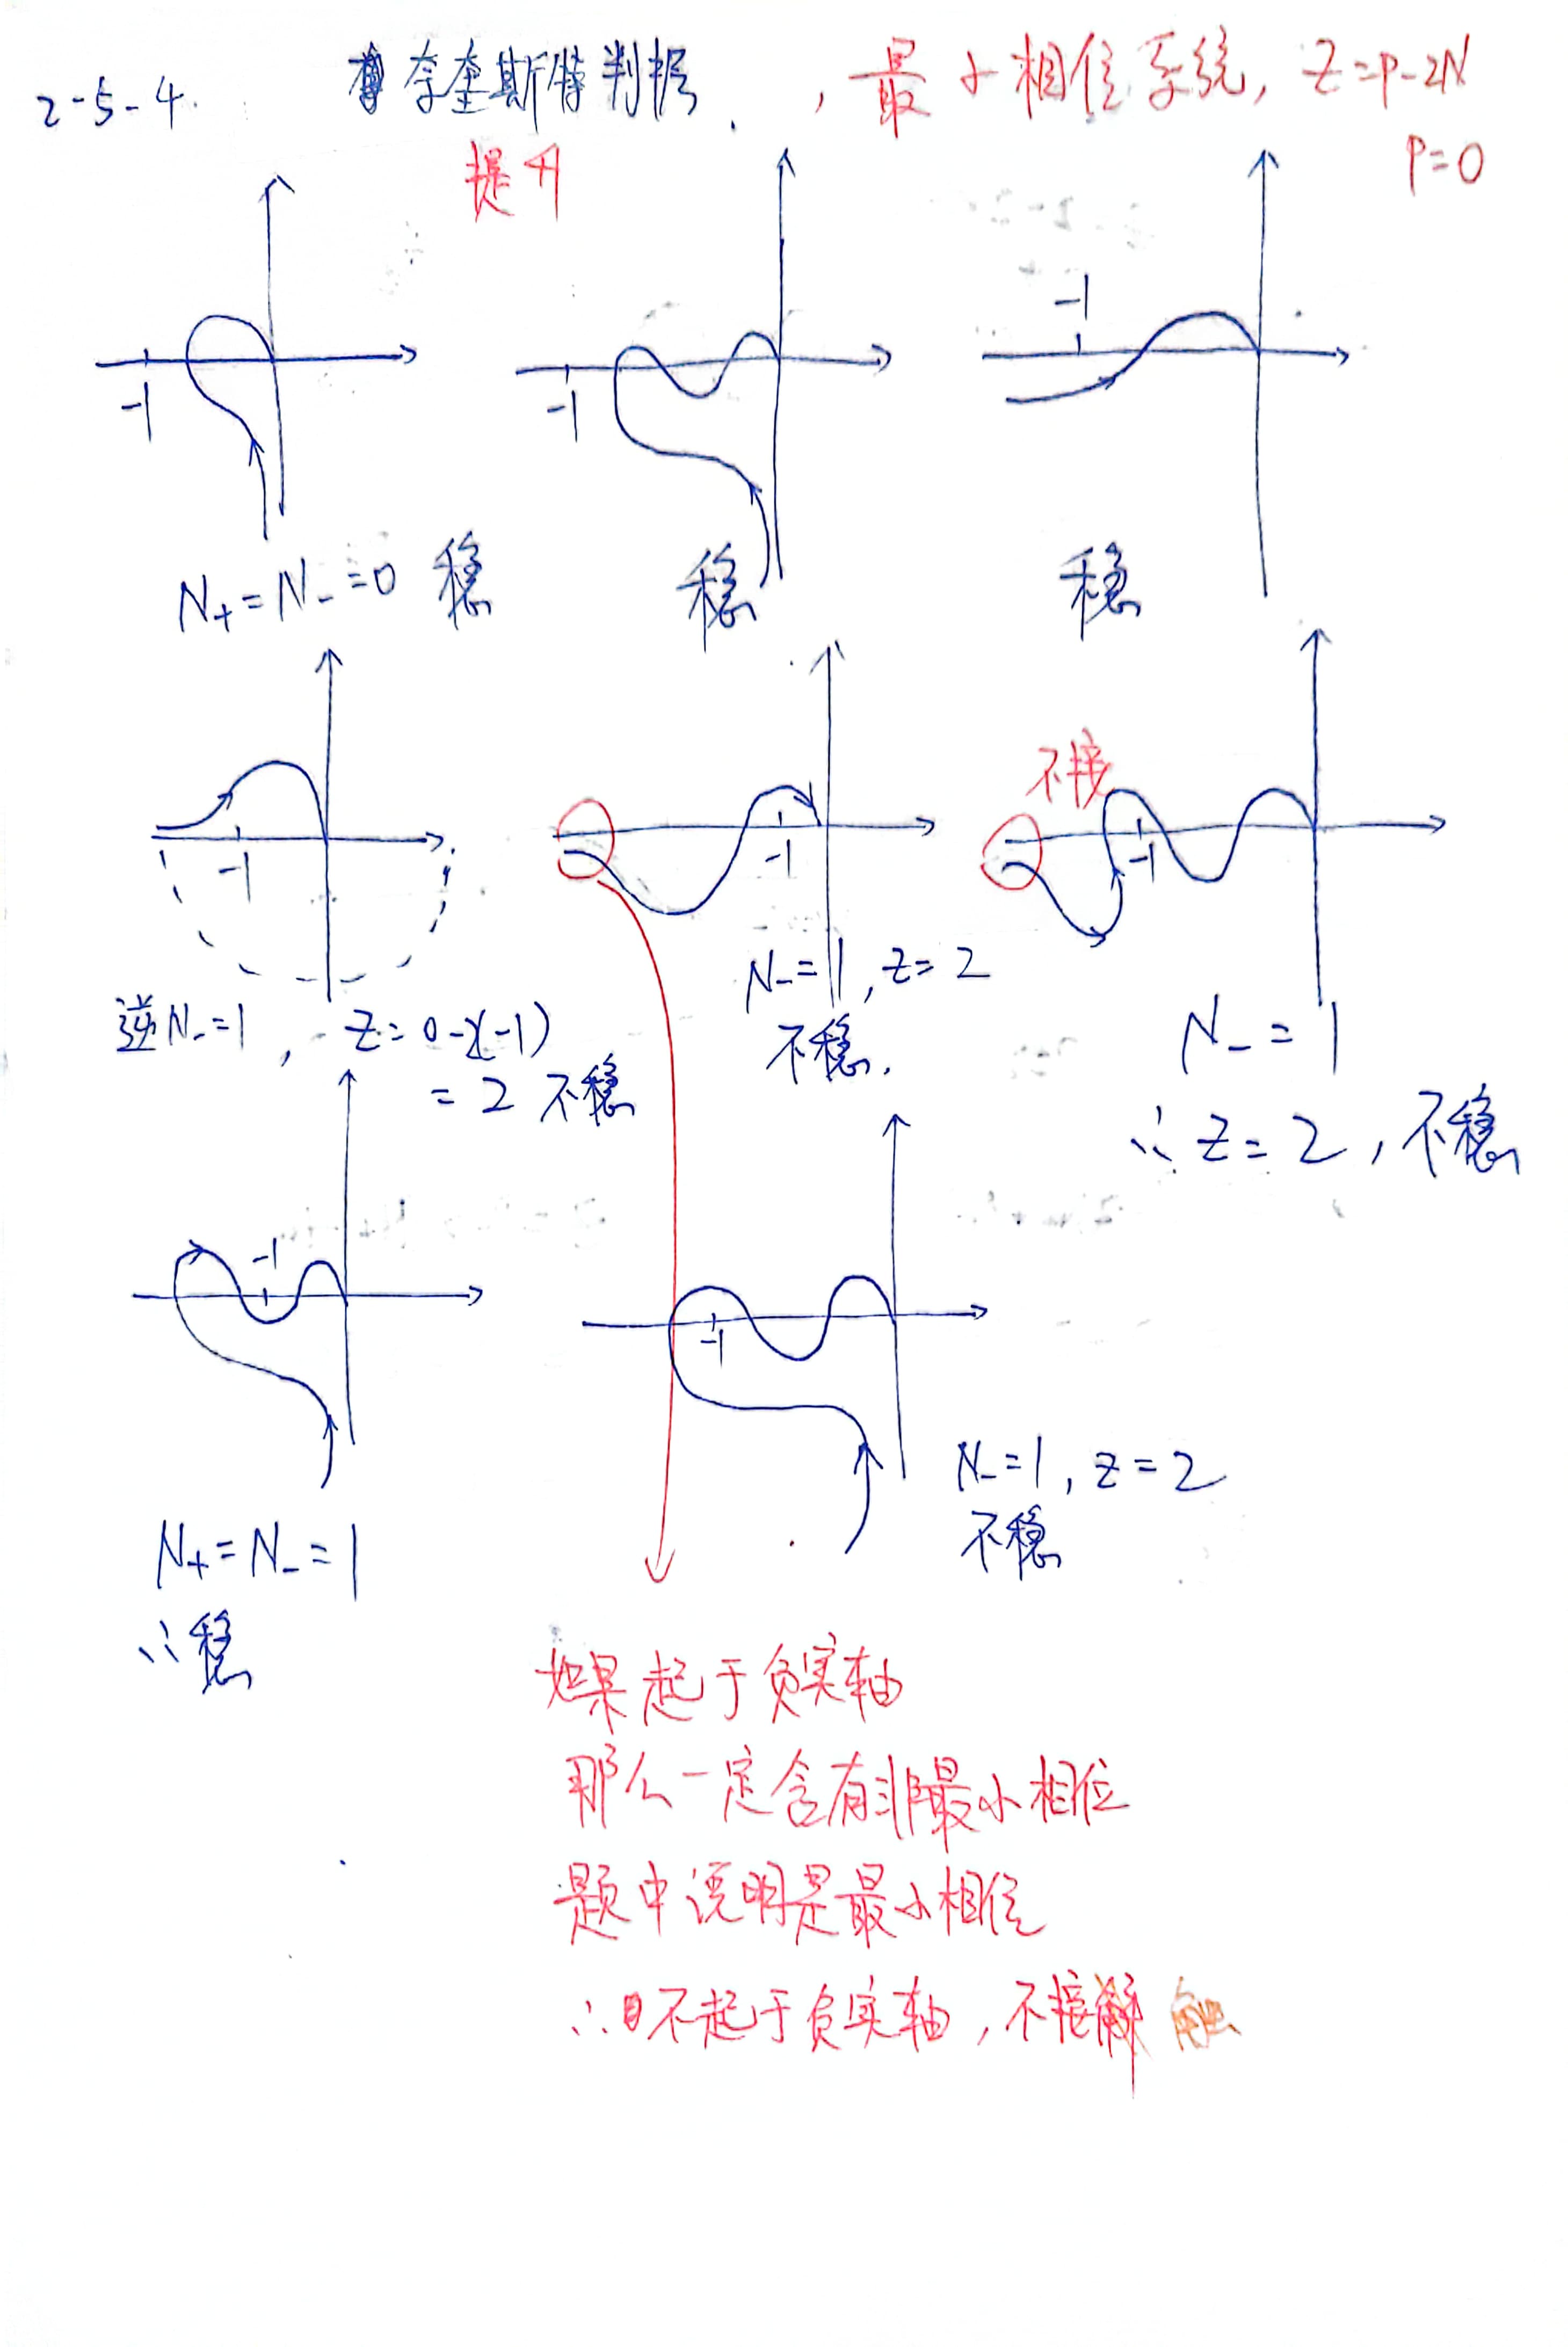 2-5-4. 奈奎斯特判据. , 最小相位系统, Z=P-2N
提升
P=0
-1
-1
-1
N+=N-=0 稳
稳
稳
不接
-1
-1
-1
逆N-=1, Z=0-2(-1)
=2 不稳
N-=1, Z=2
不稳.
N-=1
∴Z=2, 不稳
-1
-1
N+=N-=1
∴稳
N-=1, Z=2
不稳
如果起于负实轴
那么一定含有非最小相位
题中说明是最小相位
∴不起于负实轴, 不接触